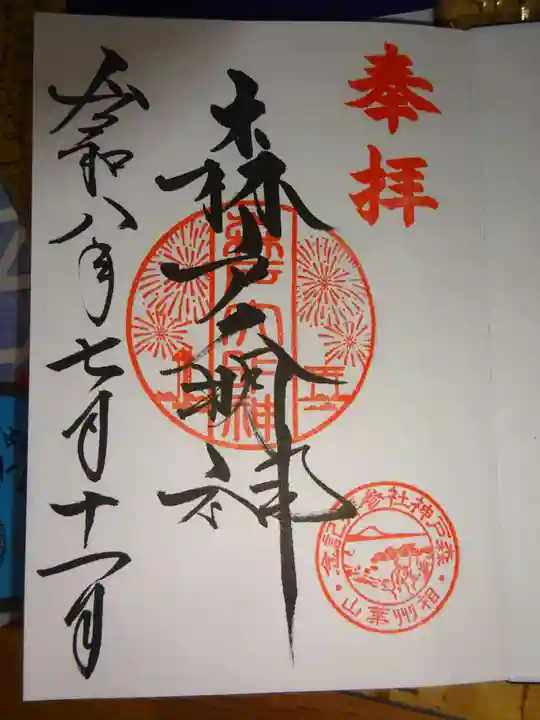 奉拝
森戸大明神
森戸大明神
森戸神社参拝記念
相州葉山
令和八年七月十一日